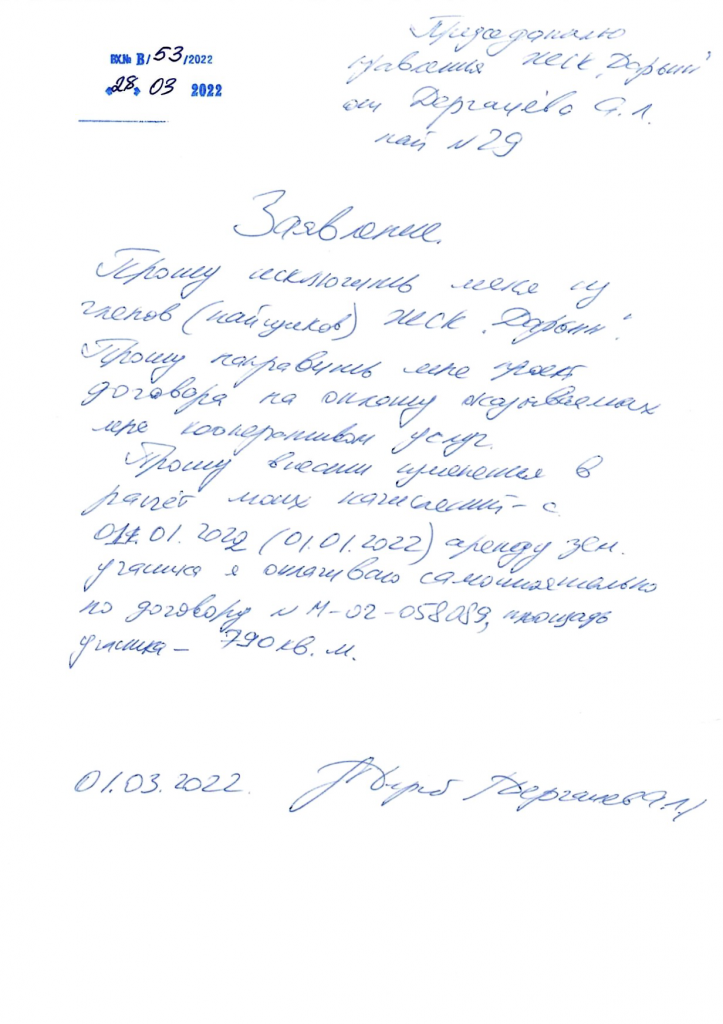 ВХ№ В/53/2022
«28» 03 2022
Председателю
правления ЖСК „Дарьин"
от Дергачёва А.Л.
пай N 29
Заявление.
Прошу исключить меня из
членов (пайщиков) ЖСК „Дарьин".
Прошу направить мне проект
договора на оплату оказываемых
мне кооперативом услуг.
Прошу внести изменения в
расчёт моих начислений – с
01.01.2022 (01.01.2022) аренду зем.
участка я оплачиваю самостоятельно
по договору N М-02-058089, площадь
участка – 790 кв. м.
01.03.2022. Дергачев А.Л.